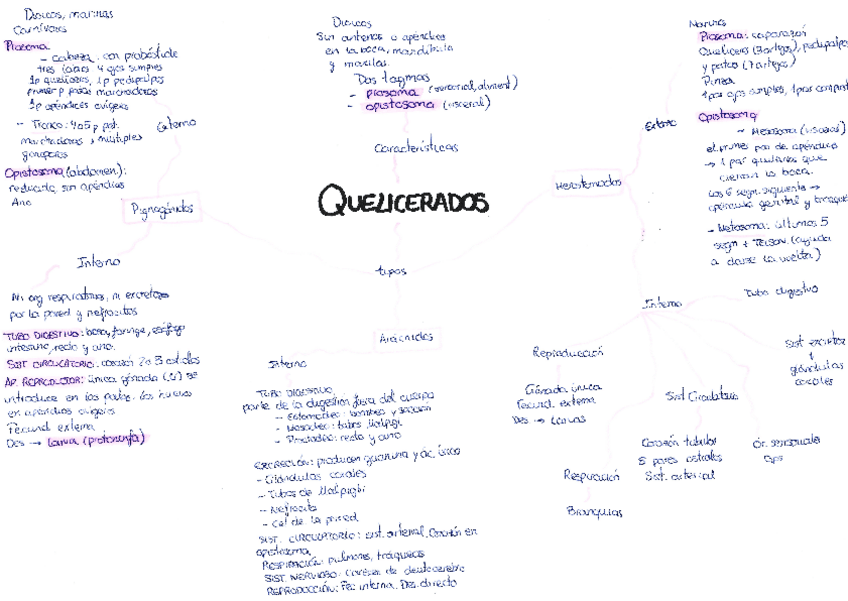 Dioicos, marinos
Carnívoros
Prosoma
- Cabeza: con probóscide
tres labios 4 ojos simples
1p quelíceros, 1p pedipalpos
primer p patas marchadoras
1p apéndices ovígeros
- Tronco: 4 o 5 p pat.
marchadoras, múltiples
gonoporos
Opistosoma (abdomen):
reducido, sin apéndices
Ano
Externo
Pignogónidos
Interno
Ni org respiratorios, ni excretores
por la pared y nefrocitos
TUBO DIGESTIVO: boca, faringe, esófago
intestino, recto y ano.
SIST CIRCULATORIO: corazón 2 o 3 ostiolos
AP. REPRODUCTOR: única gónada (U) se
introduce en las patas. Los huevos
en apéndices ovígeros
Fecund externa
Des → larva (protoninfa)
Dioicos
Sin antenas o apéndices
en la boca, mandíbula
y maxilas.
Dos tagmas
- prosoma (sensorial, aliment)
- opistosoma (visceral)
Características
QUELICERADOS
tipos
Arácnidos
Interno
TUBO DIGESTIVO
parte de la digestión fuera del cuerpo
- Estomodeo: bombeo y succión
- Mesodeo: tubos Malpigi
- Proctodeo: recto y ano
EXCRECIÓN: producen guanina y ác. úrico
- Glándulas coxales
- Tubos de Malpighi
- Nefrocito
- Cel de la pared
SIST. CIRCULATORIO: sist. arterial. Corazón en
opistosoma
RESPIRACIÓN: pulmones, tráqueas
SIST NERVIOSO: Carecen de deutocerebro
REPRODUCCIÓN: Fec interna. Des. directo
Merostomados
Marinos
Prosoma: caparazón
Quelíceros (3 artejos), pedipalpos
y patas (7 artejos)
Pinza
1 par ojos simples, 1 par compuestos
Externo
Opistosoma
- Mesosoma (visceral)
el primer par de apéndices
→ 1 par quilarios que
cierran la boca.
Los 6 segm. siguientes →
opérculo genital y branquias
- Metasoma: últimos 5
segm + Telson (ayuda
a darse la vuelta)
Interno
Tubo digestivo
Sist excretor
+
glándulas
coxales
Reproducción
Gónada única
Fecund. externa
Des → larvas
Sist Circulatorio
Corazón tubular
8 pares ostiolos
Sist. arterial
ór. sensoriales
Ojos
Respiración
Branquias